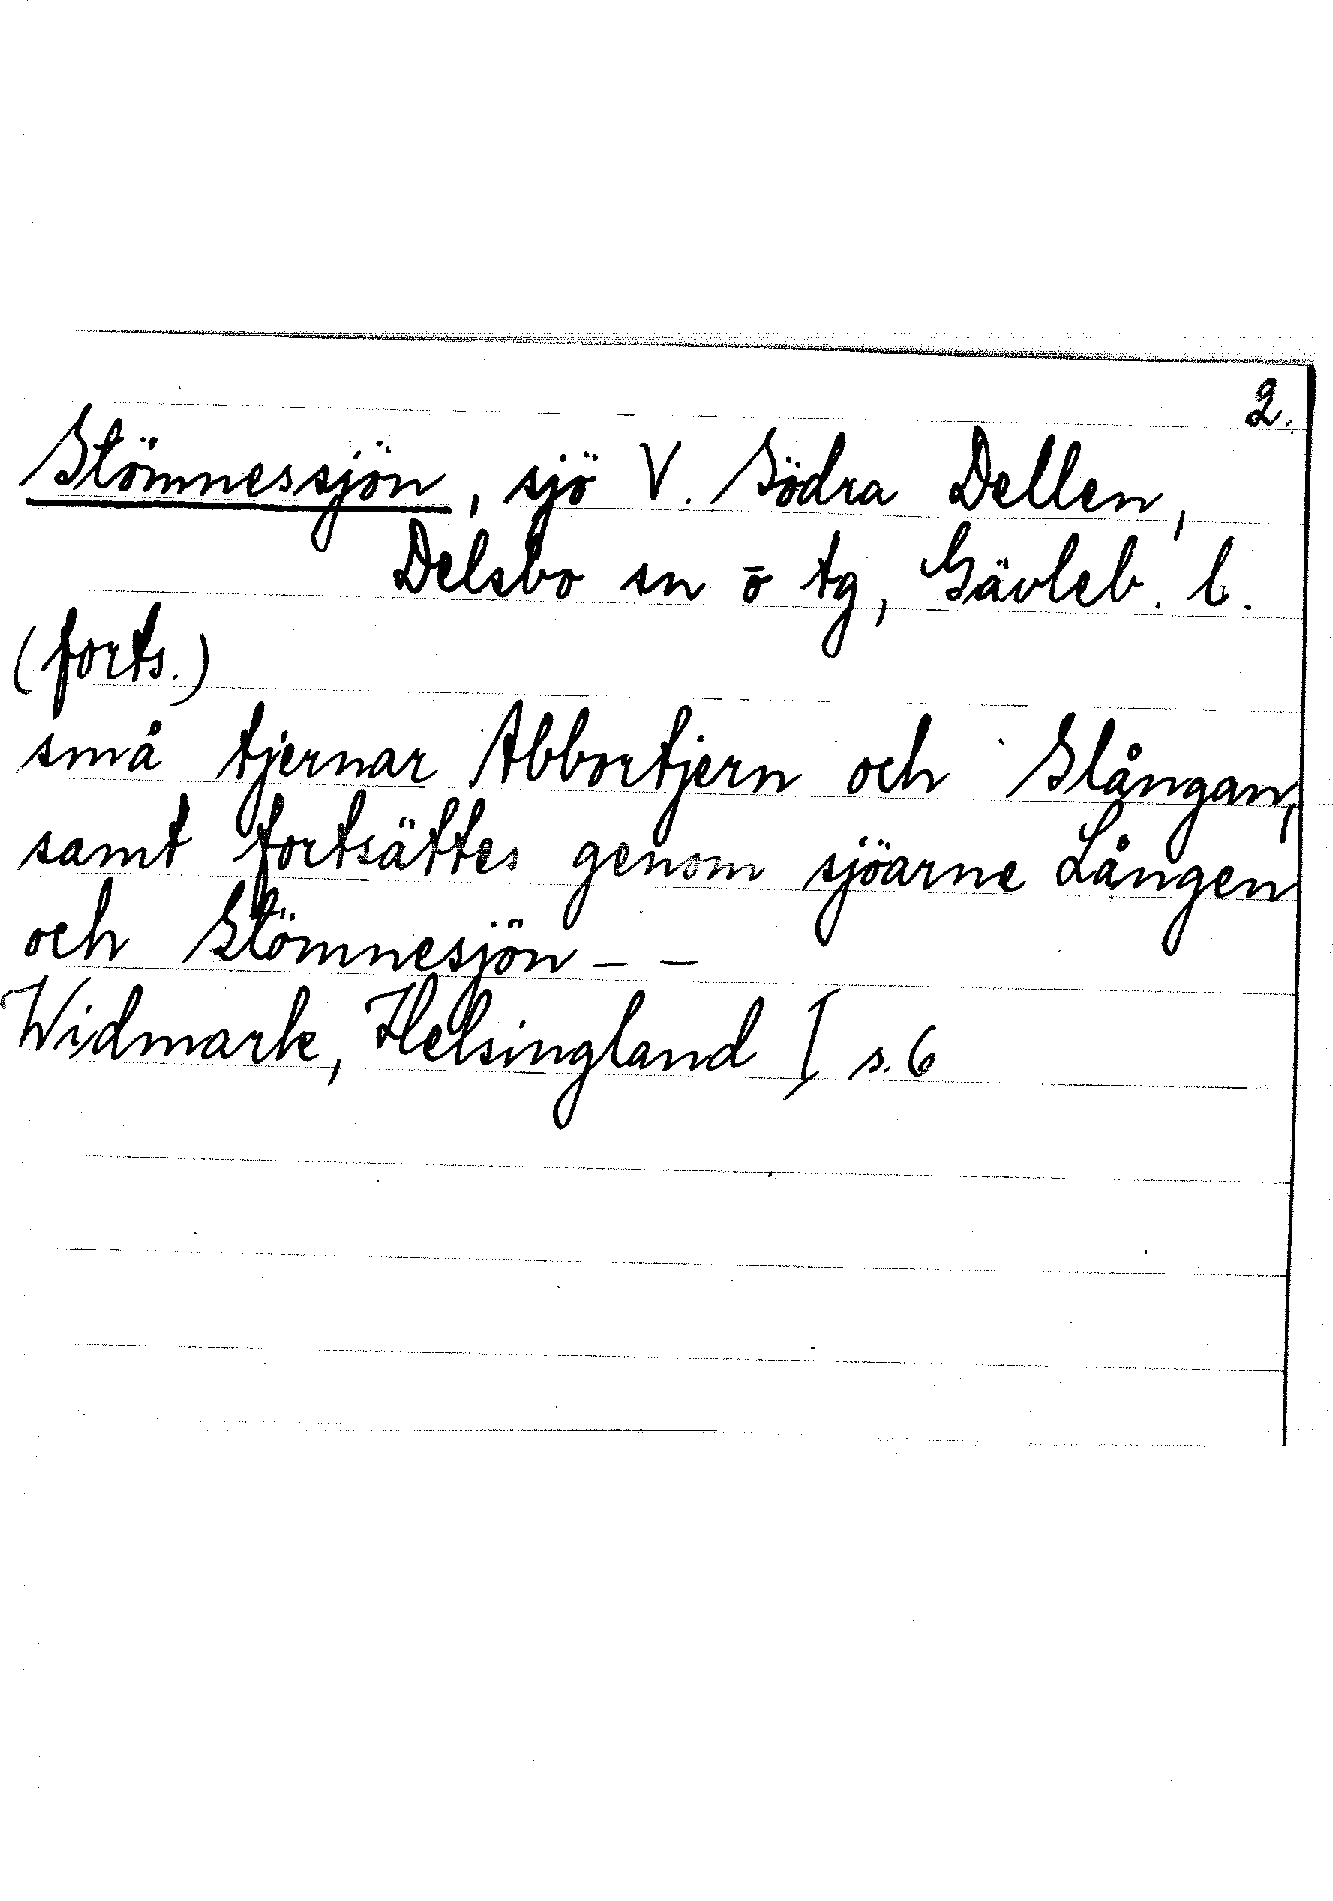 2.
Stömnessjön, sjö V. Södra Dellen,
Delsbo sn o tg, Gävleb. l.
(forts.)
små tjernar Abbortjern och Slångan,
samt fortsättes genom sjöarne Lången
och Stömnesjön – –
Widmark, Helsingland I s. 6